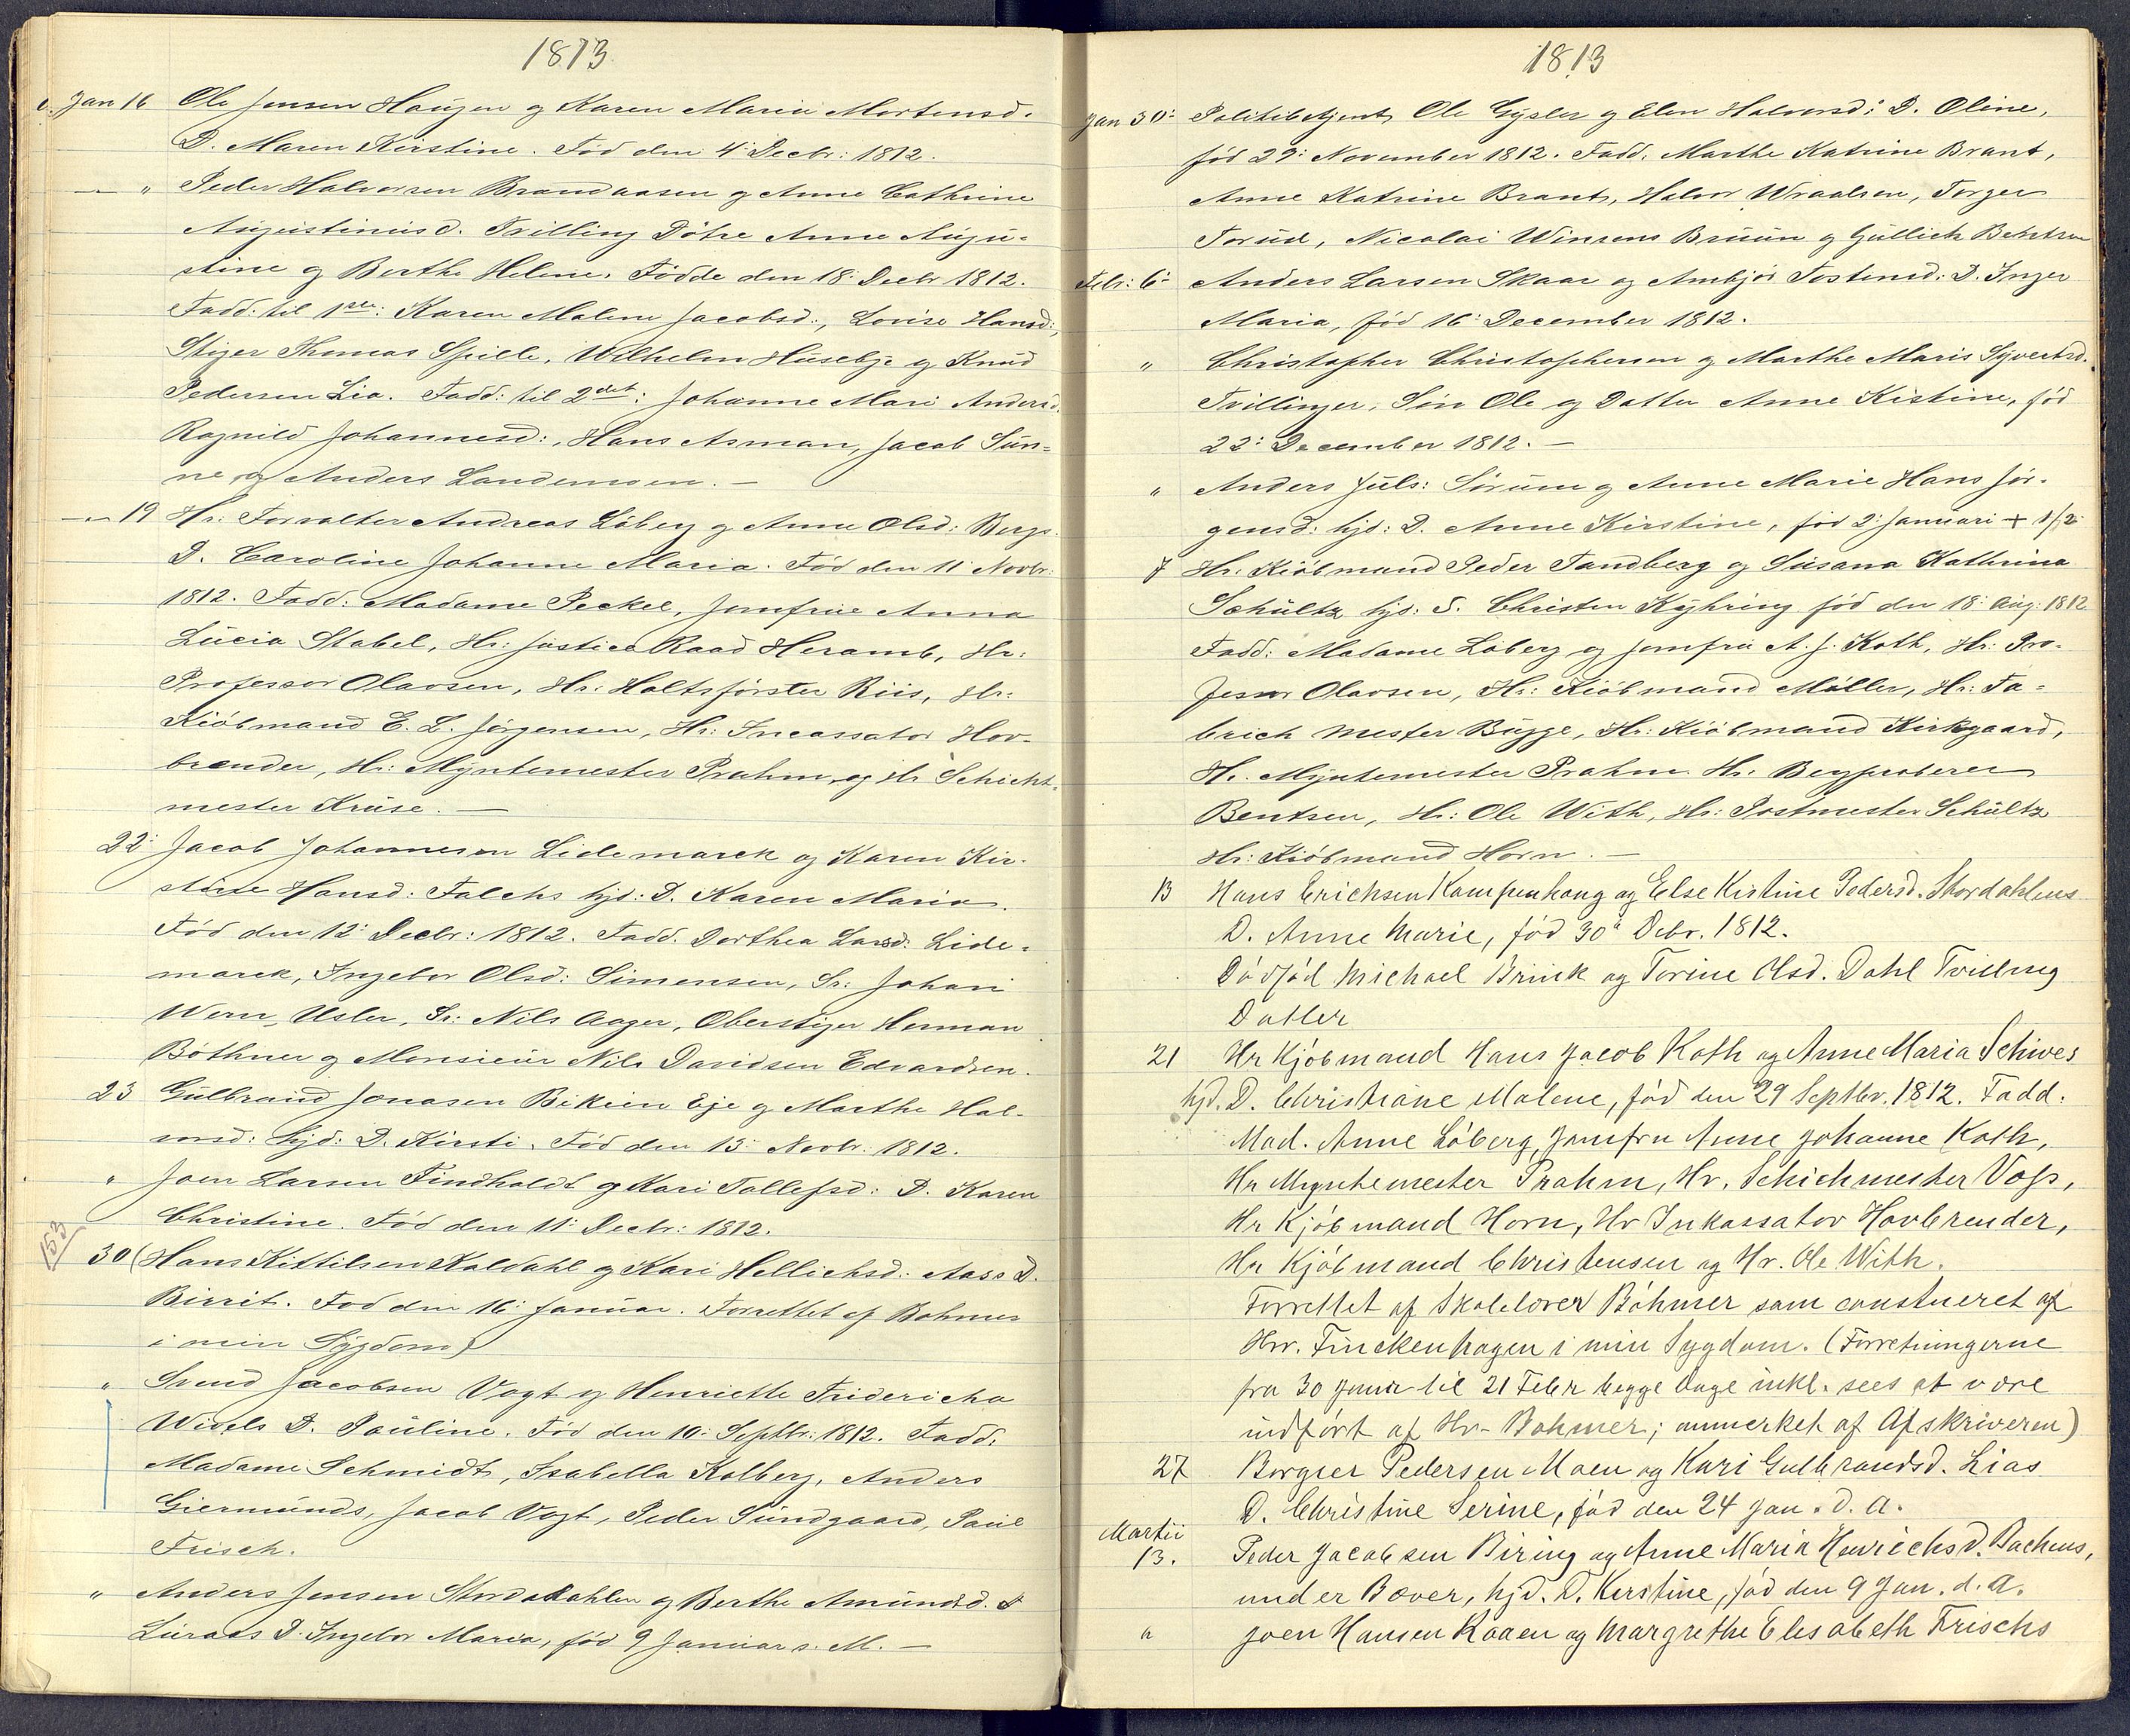 1813
Jan 16 Ole Jensen Haugen og Karen Maria Mortensd.
D. Maren Kirstine. Fød den 4: Decbr: 1812.
— " Peder Halvorsen Brandaasen og Anne Cathrine
Augustinusd. Tvilling Døtre Anne Augu-
stine og Berthe Helene. Fødde den 18: Decbr 1812.
Fadd: til 1ste: Karen Malene Jacobsd:, Lovise Hansd:,
Stiger Thomas Spille, Wilhelm Huseby og Knud
Pedersen Lia. Fadd: til 2det: Johanne Mari Andersd.
Ragnild Johannesd:, Hans Asman, Jacob Sun-
ne og Anders Landemoen. —
— 19 Hr: Forvalter Andreas Löberg og Anne Olsd: Bergs
D. Caroline Johanne Maria. Fød den 11 Novbr:
1812. Fadd: Madame Peckel, Jomfrue Anna
Lucia Stabel, Hr: Justice Raad Heramb, Hr:
Professor Olavsen, Hr: Holtsförster Riis, Hr:
Kiøbmand E. L. Jörgensen, Hr: Incassator Hov-
brender, Hr: Myntemester Prahm og Hr Schicht-
mester Kruse. —
22: Jacob Johannesen Lidemarek og Karen Kir-
stine Hansd: Falchs hjd: D. Karen Maria.
Fød den 12: Decbr: 1812. Fadd. Dorthea Larsd: Lide-
marek, Ingebor Olsd: Simensen, Sr: Johan
Wern Usler, Sr: Nils Aager, Oberstiger Herman
Böthner og Monsieur Nils Davidsen Edvardsen.
23 Gulbrand Jonasen Bikien Eje og Marthe Hal-
vorsd: hjd: D. Kirsti. Fød den 13: Novbr: 1812.
" Joen Larsen Findholdt og Kari Tollefsd: D. Karen
Christine. Fød den 11: Decbr: 1812.
153
30 (Hans Kittilsen Kaldahl og Kari Hellichsd: Aass D.
Birrit. Fød den 16: Januar. Forrettet af Bøhmer
i min Sygdom)
" Svend Jacobsen Vogt og Henriette Fridericha
Widels D. Pauline. Fød den 10: Septbr: 1812. Fadd:
Madame Schmidt, Isabella Kolberg, Anders
Giermunds, Jacob Vogt, Peder Sundgaard, Paul
Frisch.
" Anders Jensen Stordahlen og Berthe Amundsd.
Luraas D. Ingebor Maria, fød 9 Januar s. M. —
1813
Jan 30: Politibetjent Ole Gysler og Elen Halvorsd: D. Oline,
fød 29: November 1812. Fadd. Marthe Katrine Brant,
Anne Katrine Brant, Halvor Wraalsen, Torger
Torud, Nicolai Winsens Bruun og Gullich Behrtsen
Febr: 6: Anders Larsen Skaar og Ambjør Tostensd: D. Inger
Maria, fød 16: December 1812.
" Christopher Christophersen og Marthe Maris Syvertsd.
Tvillinger, Søn Ole og Datter Anne Kistine, fød
22: December 1812. —
" Anders Juls: Sørum og Anne Marie Hans Jör-
gensd: hjd: D. Anne Kirstine, fød 2: Januari + 8/2
7 Hr. Kiøbmand Peder Tandberg og Susana Kathrina
Schultz hjd: S. Christen Kyhring fød den 18: Aug: 1812
Fadd: Madame Löberg og Jomfru A. J. Koth, Hr: Pro-
fessor Olavsen, Hr: Kiøbmand Möller, Hr: Fa-
brich mester Bugge, Hr: Kiøbmand Kirkgaard,
Hr. Myntemester Prahm Hr. Bergprober
Bentsen, Hr: Ole With, Hr: Postmester Schultz
Hr: Kiøbmand Horn. —
13 Hans Erichsen Kampenhaug og Else Kistine Pedersd. Stordahlens
D. Anne Marie, fød 30te Debr. 1812.
Dødfød Michael Brink og Torine Olsd. Dahl Tvilling
Datter
21 Hr Kjøbmand Hans Jacob Koth og Anne Maria Schives
hjd. D. Christiane Malene, fød den 29 Septbr. 1812. Fadd:
Mad. Anne Löberg, Jomfru Anne Johanne Koth,
Hr Myntemester Prahm, Hr. Schichmester Vogs,
Hr Kjøbmand Horn, Hr Inkassator Hovbrender,
Hr Kjøbmand Christensen og Hr. Ole With.
Forrettet af Skolelærer Böhmer som constueret af
Hrr. Finckenhagen i min Sygdom. (Forretningerne
fra 30 Januar til 21 Febr begge Dage inkl. sees at være
indført af Hr. Bohmer; anmerket af Afskriveren)
27 Borger Pedersen Moen og Kari Gulbrandsd. Lias
D. Christine Serine, fød den 24 Jan. d. A.
Martii
13. Peder Jacobsen Biring og Anne Maria Henrichsd. Bachens,
under Bæver, hjd. D. Kerstine, fød den 9 Jan. d. A.
" Joen Hansen Kaaen og Margrethe Elesabeth Frischs